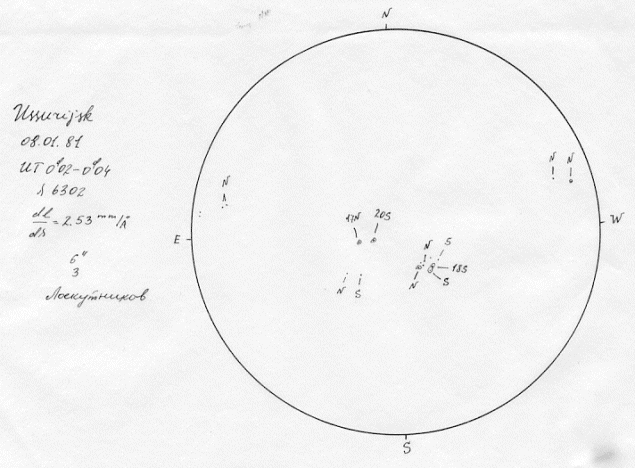 N
Ussurijsk
08.01.81
UT 0ʰ02-0ʰ04
λ 6302
dl/dλ = 2.53 mm/Å
6"
3
Лоскутников
N N
N
W
17N 20S
E
N S
18S
N S
N S
S